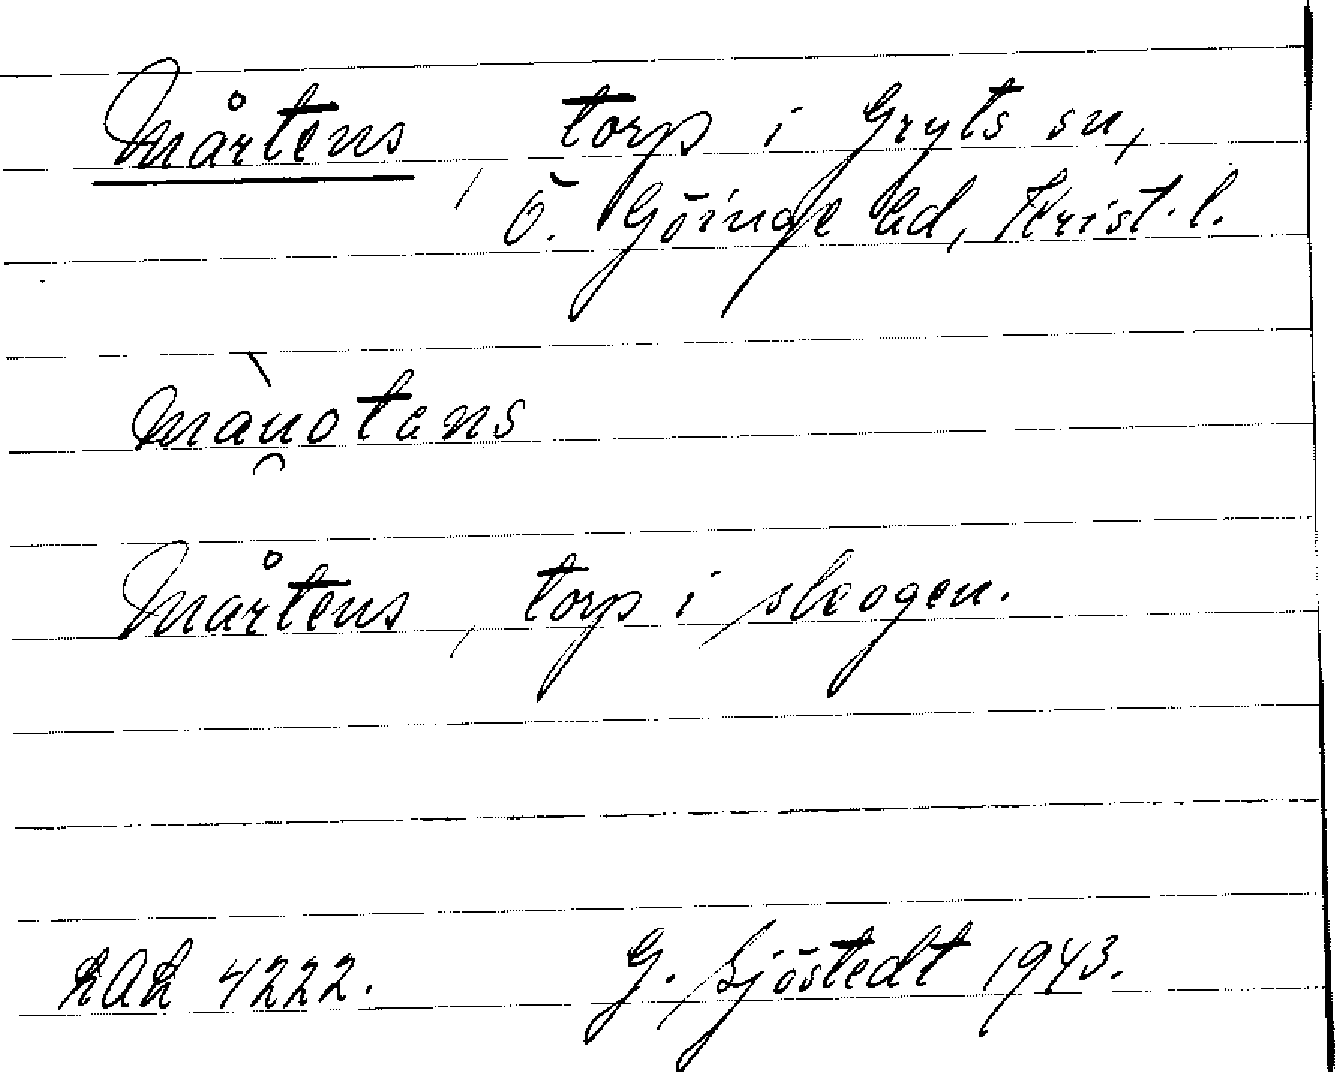 Mårtens, torp i Gryts sn,
Ö. Göinge hd, Krist. l.
màu̯otens
Mårtens, torp i skogen.
LAL 4222. G. Sjöstedt 1943.